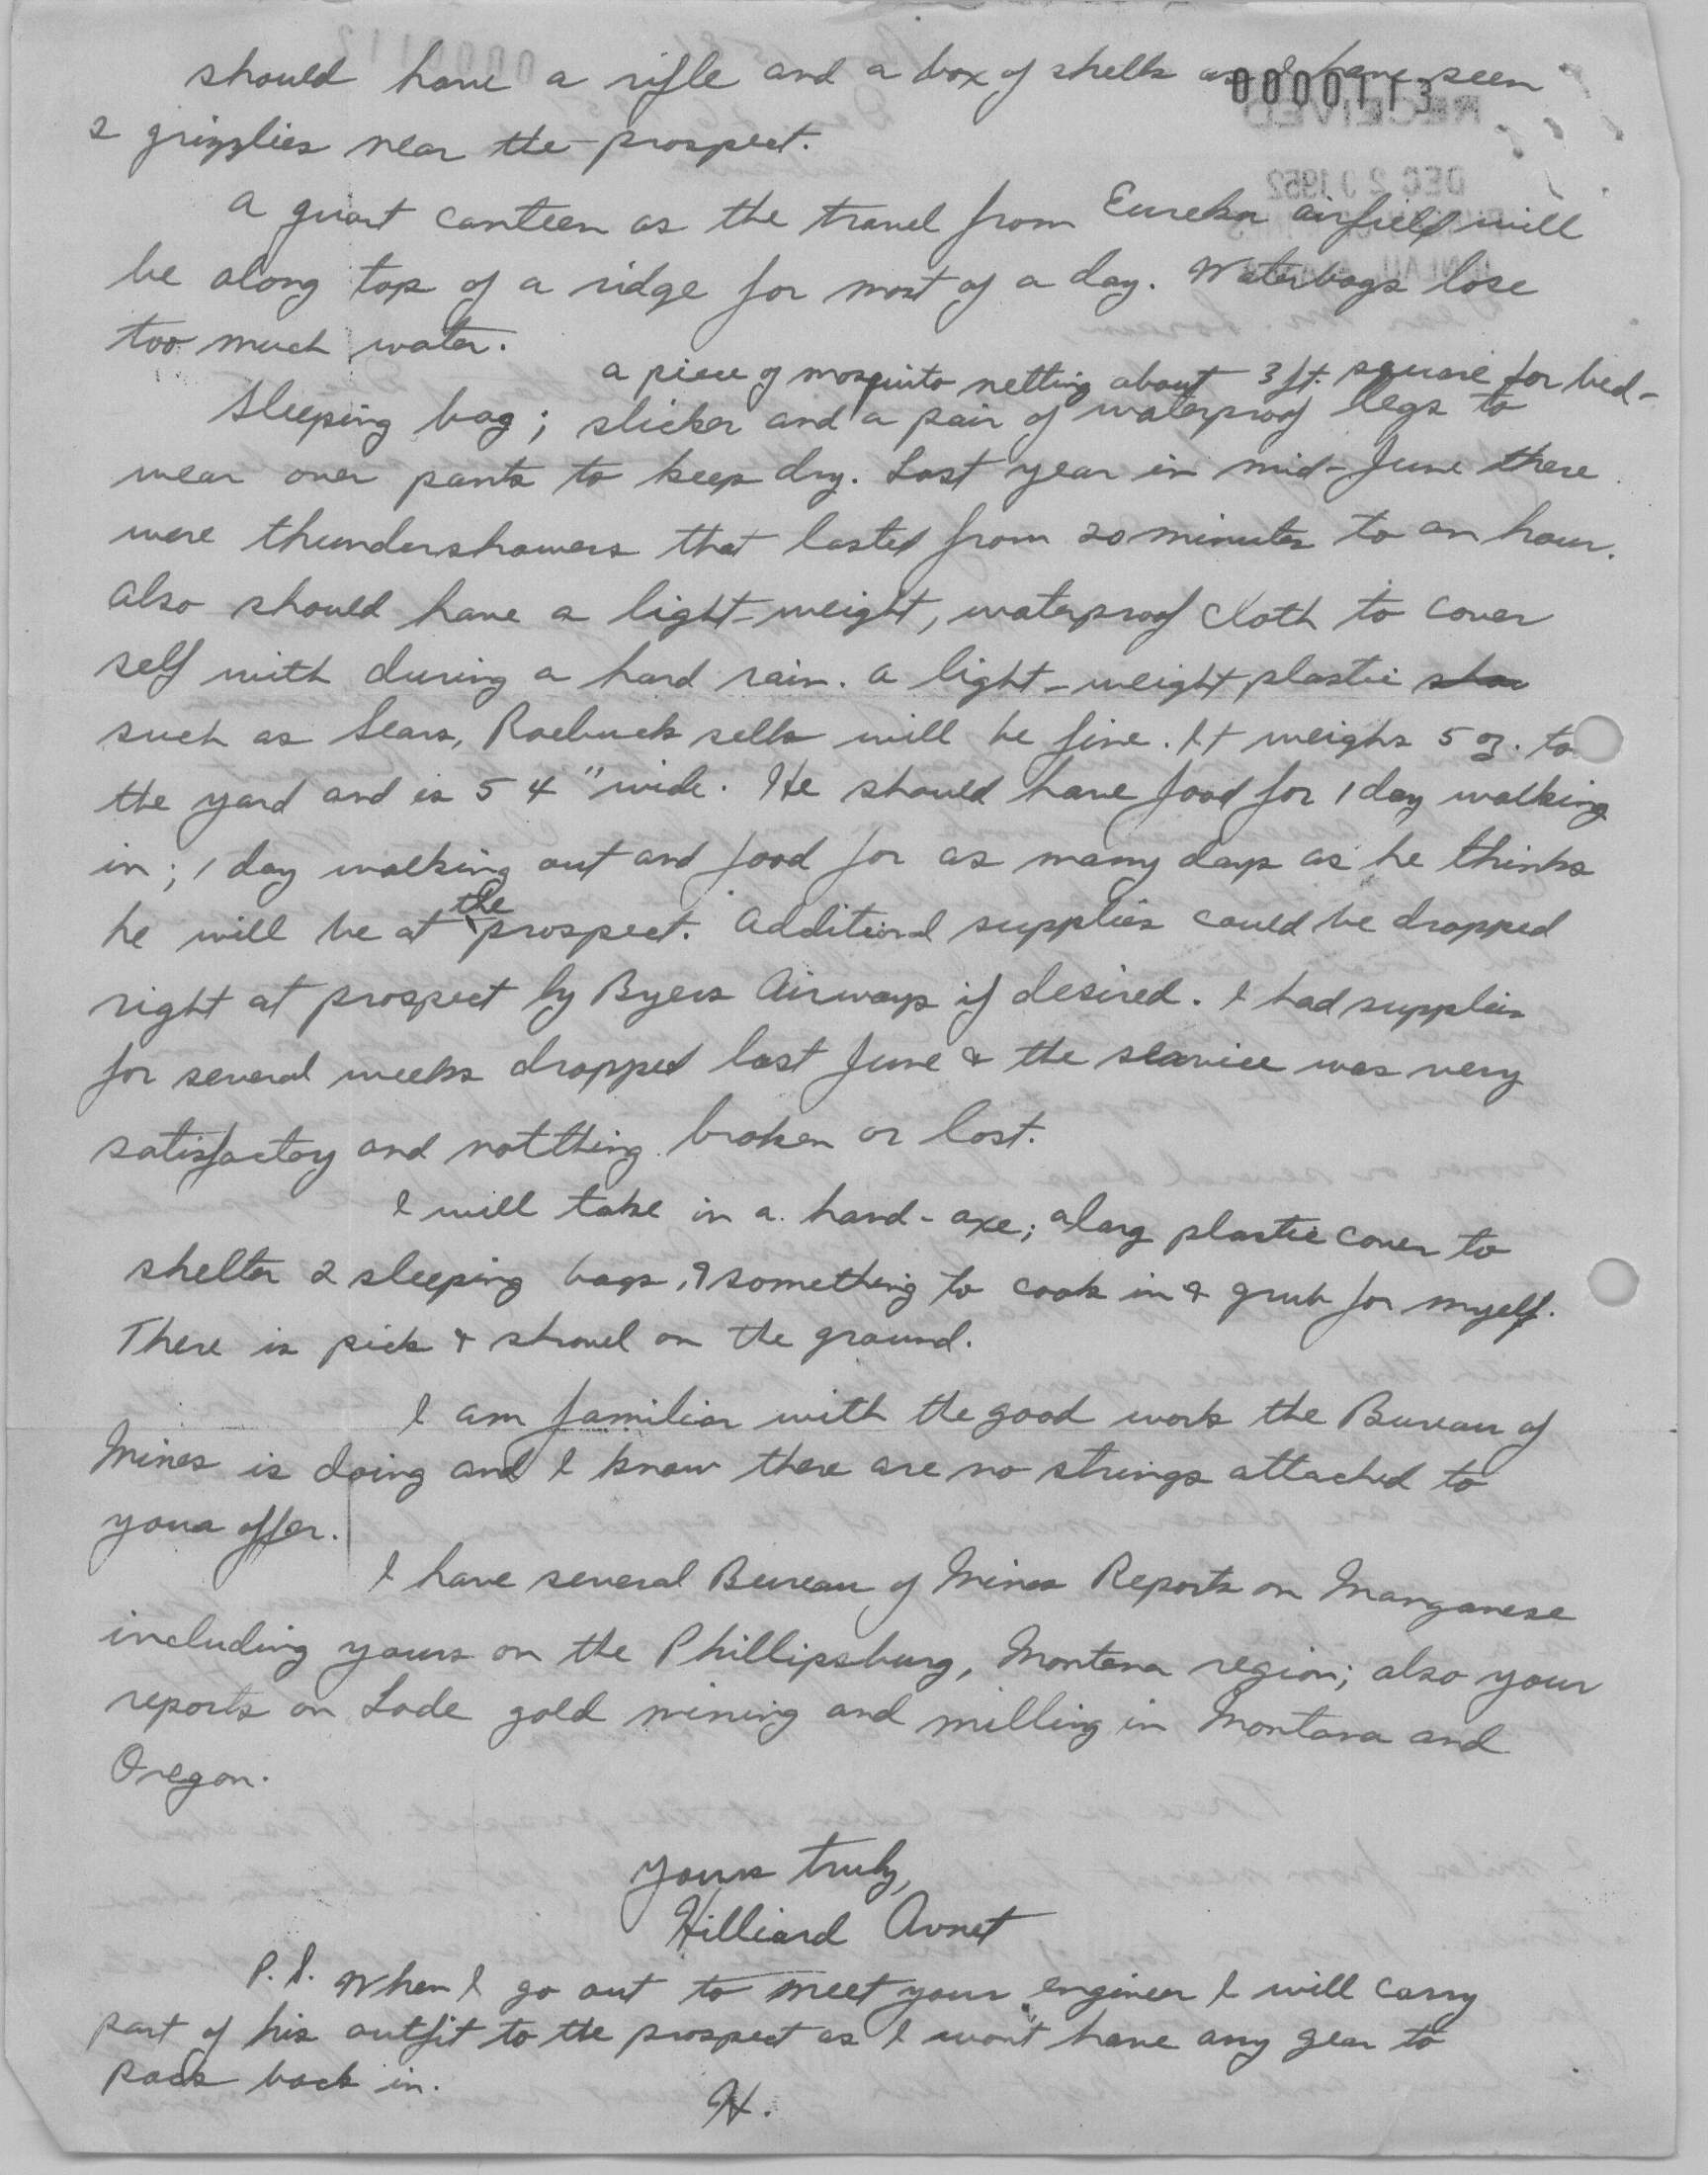 0000113
should have a rifle and a box of shells as I have seen
2 grizzlies near the prospect.
RECEIVED
DEC 20 1952
A quart canteen as the travel from Eureka airfield will
be along top of a ridge for most of a day. Waterbags lose
too much water.
a piece of mosquito netting about 3 ft. square for bed-
Sleeping bag; slicker and a pair of waterproof legs to
wear over pants to keep dry. Last year in mid-June there
were thundershowers that lasted from 20 minutes to an hour.
Also should have a light-weight, waterproof cloth to cover
self with during a hard rain. A light-weight plastic
such as Sears, Roebuck sells will be fine. It weighs 5 oz. to
the yard and is 54" wide. He should have food for 1 day walking
in; 1 day walking out and food for as many days as he thinks
he will be at the prospect. Additional supplies could be dropped
right at prospect by Byers Airways if desired. I had supplies
for several weeks dropped last June & the service was very
satisfactory and notthing broken or lost.
I will take in a hand-axe; a larg plastic cover to
shelter 2 sleeping bags, & something to cook in & grub for myself.
There is pick & shovel on the ground.
I am familiar with the good work the Bureau of
Mines is doing and I know there are no strings attached to
your offer.
I have several Bureau of Mines Reports on Manganese
including yours on the Phillipsburg, Montana region; also your
reports on Lode gold mining and milling in Montana and
Oregon.
Yours truly,
Hilliard Avnet
P.S. When I go out to meet your engineer I will carry
part of his outfit to the prospect as I won't have any gear to
pack back in.
H.